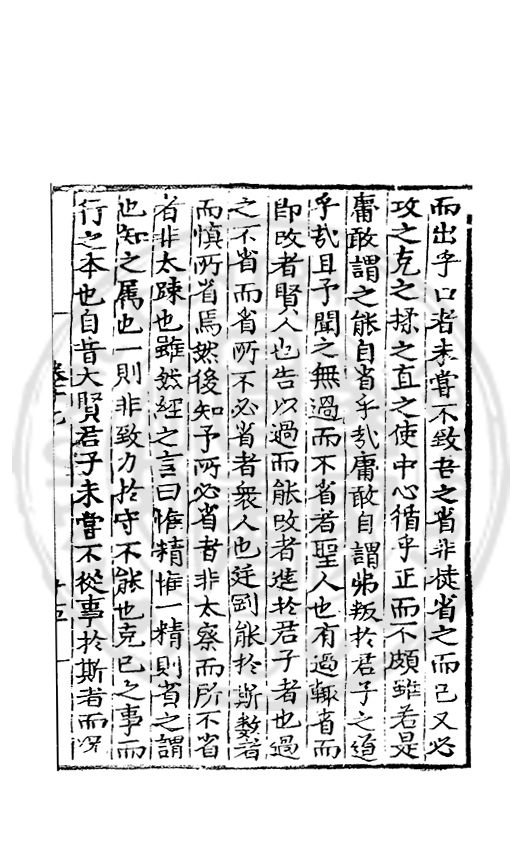 而出乎口者未嘗不致吾之省非徒省之而已又必
攻之克之揉之直之使中心循乎正而不頗雖若是
庸敢謂之能自省乎㢤庸敢自謂弗叛於君子之道
乎㢤且予聞之無過而不省者聖人也有過輙省而
即改者賢人也告以過而能改者進於君子者也過
之不省而省所不必省者衆人也廷劉能於斯數者
而慎所省焉然後知予所必省者非太察而所不省
者非太踈也雖然經之言曰惟精惟一精則省之謂
也知之属也一則非致力於守不能也克己之事而
行之本也自昔大賢君子未嘗不從事於斯者而况
卷十七
十五